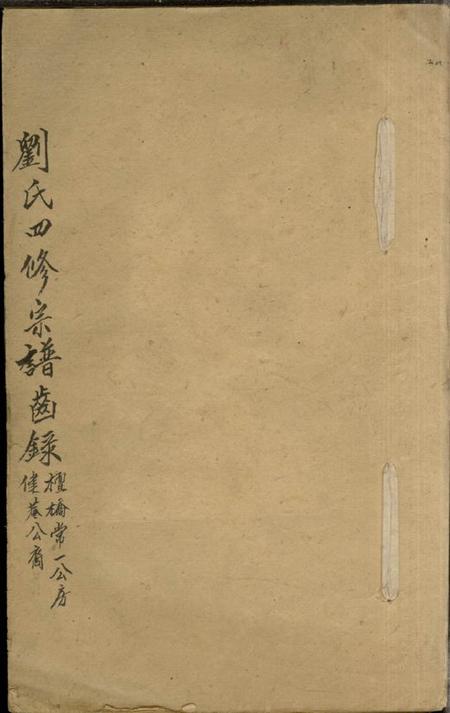 劉氏四修宗譜齒錄
檀橋常一公房
健菴公裔